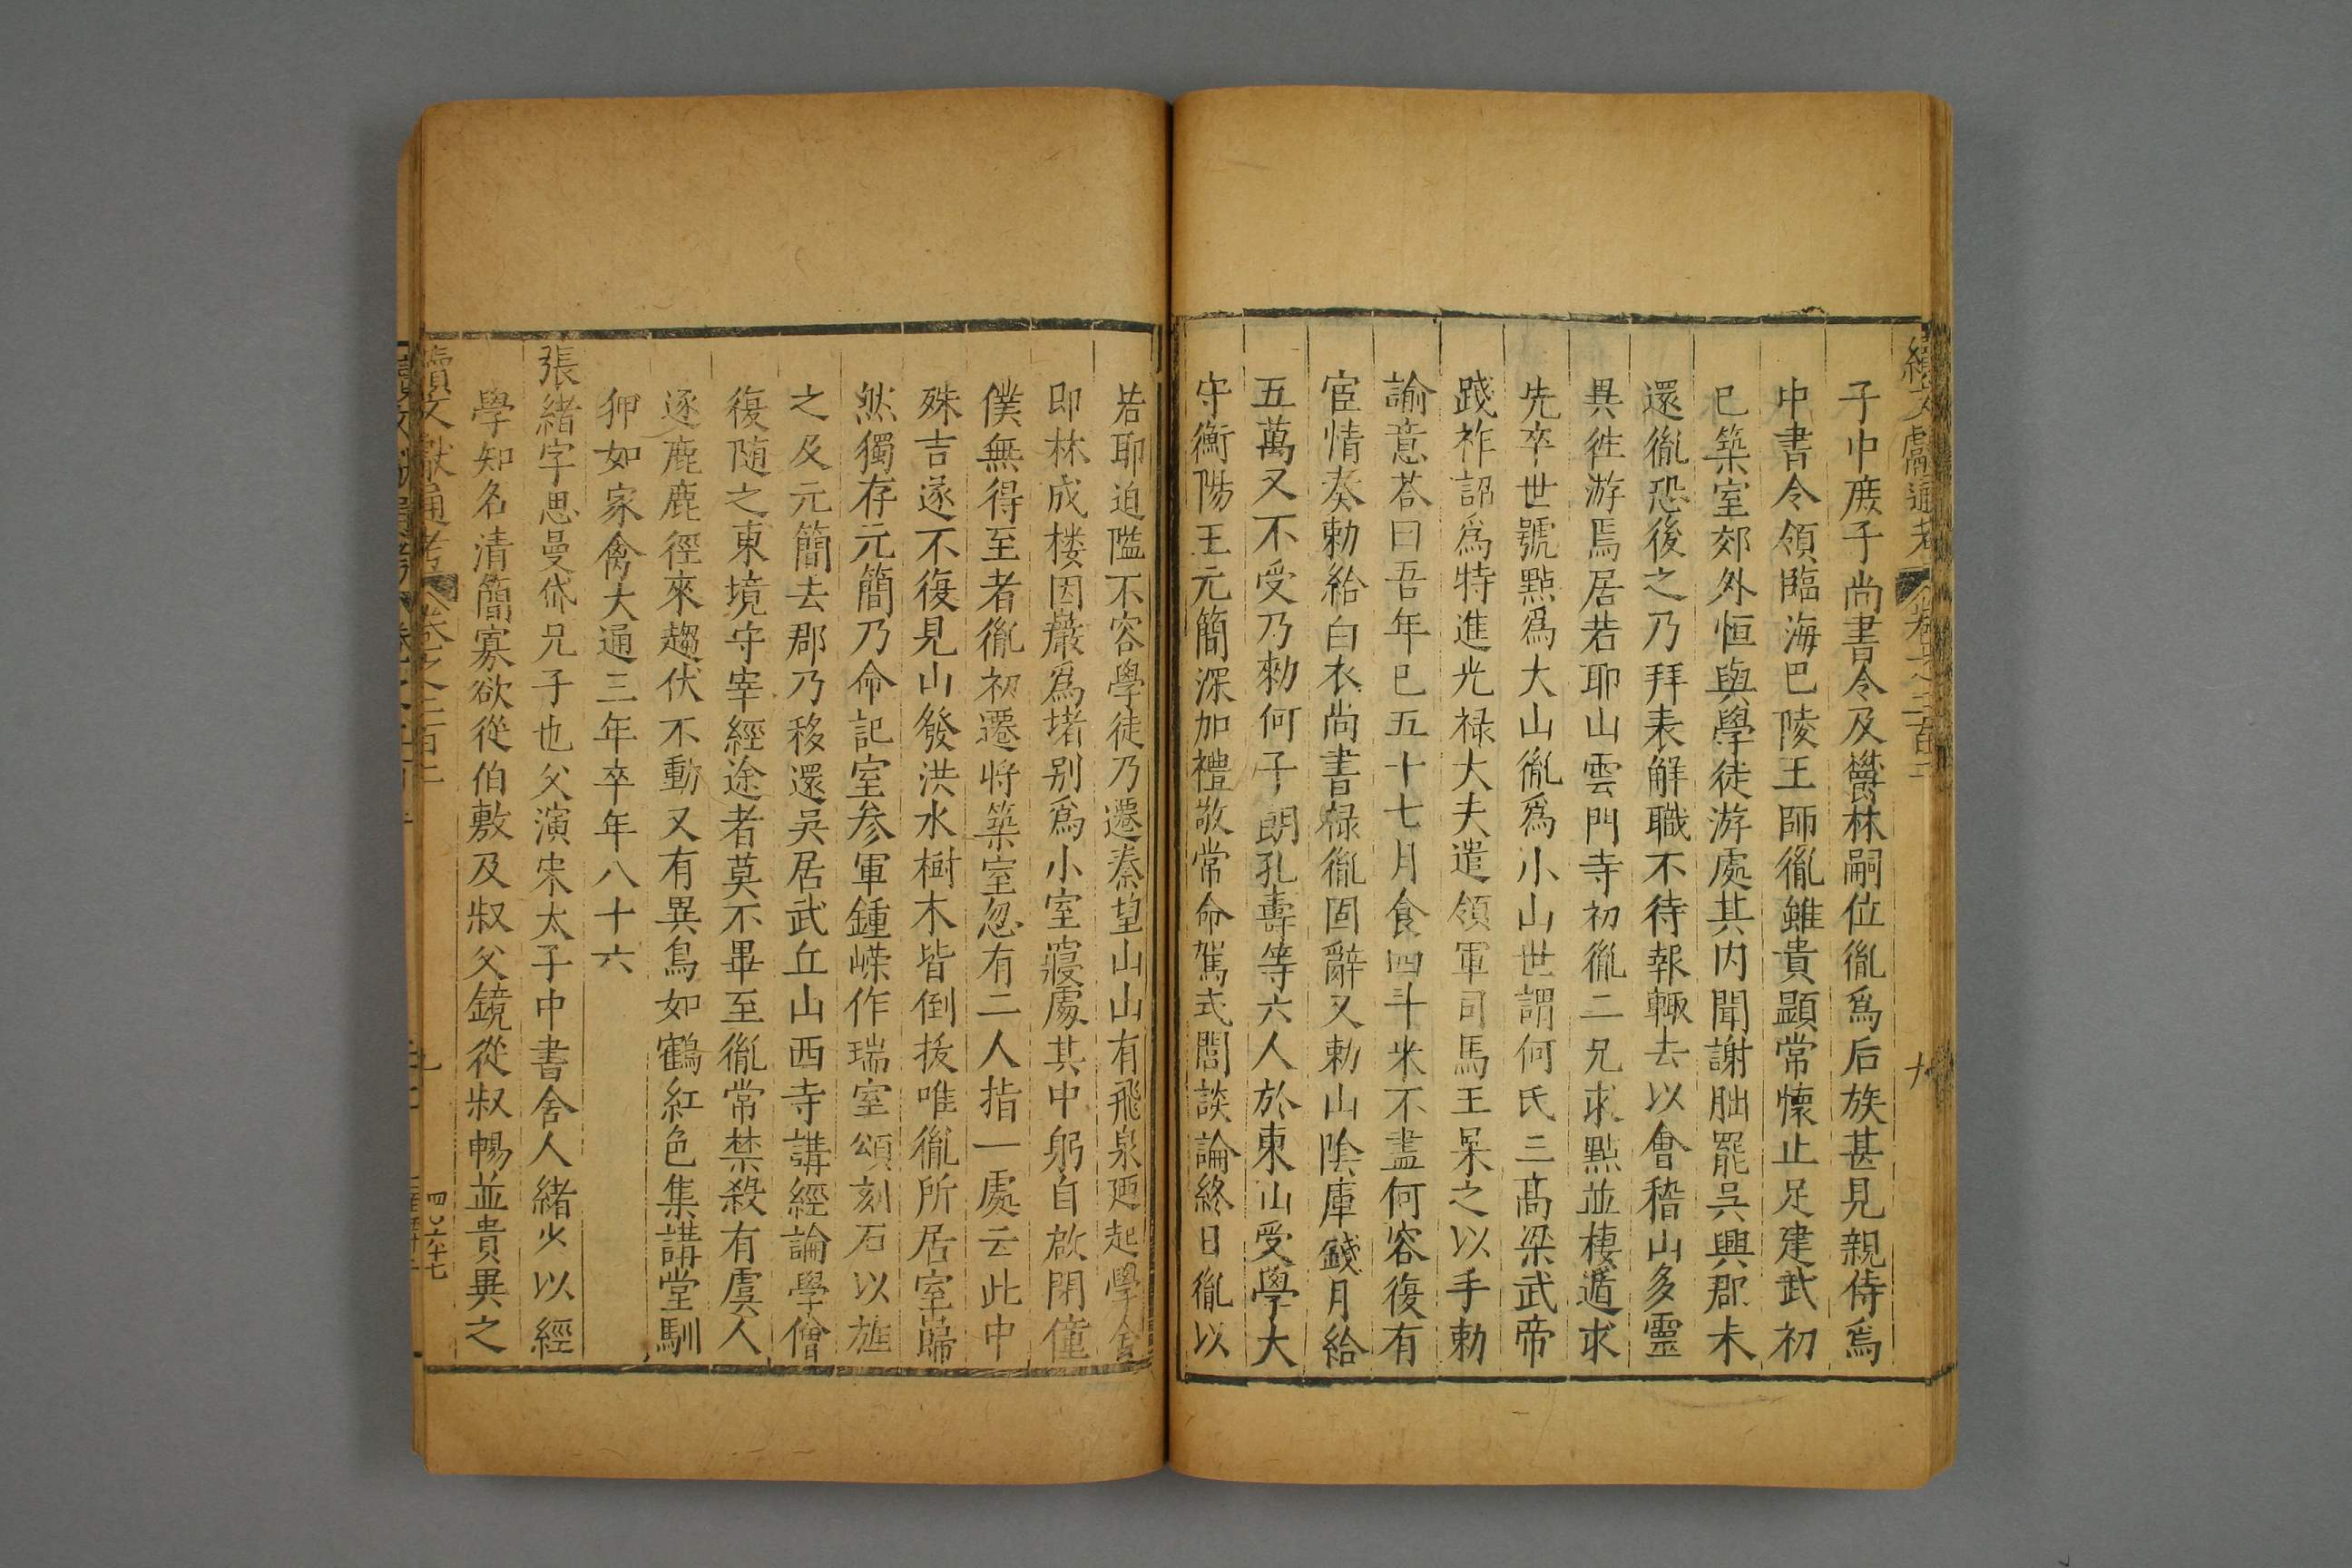 續文獻通考 卷之二百二 九
子中庶子尚書令及欎林嗣位胤爲后族甚見親待爲
中書令領臨海巴陵王師胤雖貴顯常懐止足建武初
已築室郊外恒與學徒游處其内聞謝朏罷吳興郡未
還胤恐後之乃拜表解職不待報輙去以會稽山多靈
異徃游焉居若耶山雲門寺初胤二兄求點並棲遁求
先卒世號點爲大山胤爲小山世謂何氏三髙梁武帝
踐祚詔爲特進光禄大夫遣領軍司馬王杲之以手勅
諭意荅曰吾年已五十七月食四斗米不盡何容復有
宦情奏勅給白衣尚書禄胤固辭又勅山陰庫錢月給
五萬又不受乃勑何子朗孔壽等六人於東山受學大
守衡陽王元簡深加禮敬常命駕式閭談論終日胤以
若耶迫隘不容學徒乃遷秦望山山有飛泉廼起學舍
即林成楼因巖爲堵别爲小室寢處其中躬自啟閉僮
僕無得至者胤初遷將築室忽有二人指一處云此中
殊吉遂不復見山發洪水樹木皆倒拔唯胤所居室巋
然獨存元簡乃命記室参軍鍾嶸作瑞室頌刻石以旌
之及元簡去郡乃移還吳居武丘山西寺講經論學僧
復随之東境守宰經途者莫不畢至胤常禁殺有虞人
逐鹿鹿徑來趨伏不動又有異鳥如鶴紅色集講堂馴
狎如家禽大通三年卒年八十六
張緒字思曼岱兄子也父演宋太子中書舍人緒少以經
學知名清簡寡欲從伯敷及叔父鏡從叔暢並貴異之
續文獻通考 卷之二百二